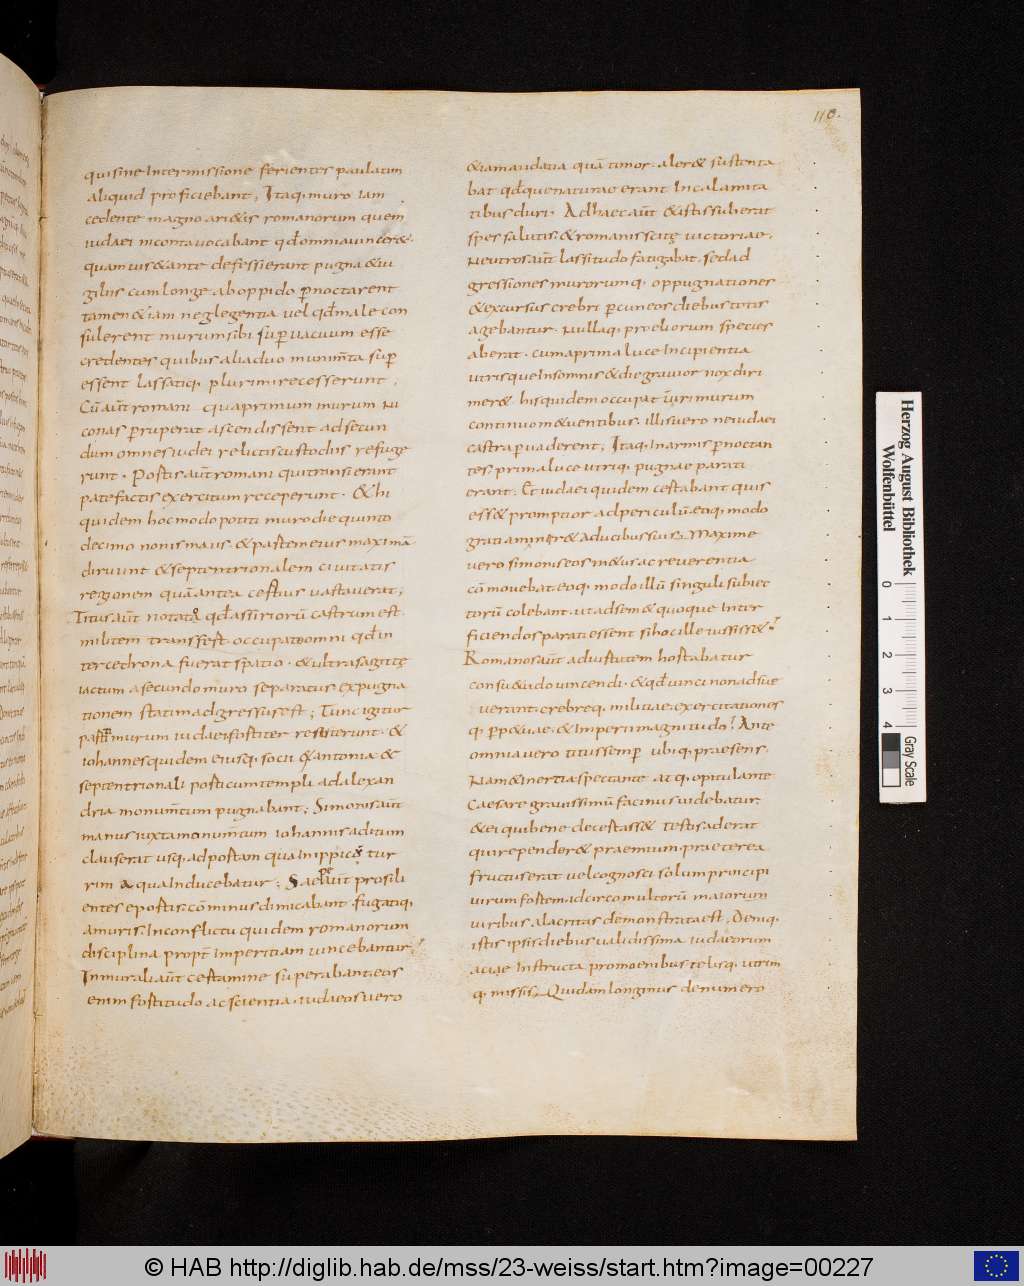 110.
qui sine Intermissione ferientes paulatim
aliquid proficiebant; Itaq; muro iam
cedente magno ari&is romanorum quem
iudaei niconta uocabant qđ omnia uincer&
quam uis&ante defessierant pugna &ui
giliis cum longe ab oppido ꝑnoctarent
tamen &iam neglegentia uel qđ male con
sulerent murum sibi suꝑuacuum esse
credentes quibus alia duo munim̄ta suꝑ
essent lassatiq; plurimi recesserunt.
Cū aūt romani qua primum murum ni
conas ꝑruperat ascendissent ad secun
dum omnes iudei relictis custodiis refuge
runt. Postis aūt romani qui transierant
patefactis exercitum receperunt. &hi
quidem hoc modo potiti muro die quinto
decimo nonis maiis &partem eius maximā
diruunt &septentrionalem ciuitatis
regionem quā antea cestius uastauerat;
Titus aūt notato qđ assiriorū castrum est
militem transfert occupato omni qđ in
ter cedrona fuerat spatio. &ultra sagittę
iactum a secundo muro separatus expugna
tionem statim adgressus est; Tunc igitur
murum iudaei fortiter resisterunt &
iohannes quidem eiusq; socii &antonia &
septentrionali porticu templi ad alexan
dria monum̄tum pugnabant; Simonis aūt
manus iuxta monum̄tum iohannis aditum
clauserat usq; ad portam qua In ippicō tur
rim aqua Inducebatur; Saepe aūt prosili
entes e portis cōminus dimicabant. fugatiq;
a muris. In conflictu quidem romanorum
disciplina propt̄ Imperitiam uincebantur
In murali aūt certamine superabant eos
enim fortitudo ac scientia. iudaeos uero
&iam audatia quā timor aler& sustenta
bat qđque naturae erant In calamita
tibus duri. Ad haec aūt &istis suberat
spes salutis. &romanis scitę uictoriae.
Neutros aūt lassitudo fatigabat. sed ad
gressiones murorumq; oppugnationes
&excursus crebri ꝑ cuneos diebus totis
agebantur. Nullaq; proeliorum species
aberat. cum a prima luce Incipientia
utrisque Insomnis &die grauior nox diri
mer& his quidem occupat uīri murum
continuo m&uentibus. illis uero ne iudaei
castra ꝑuaderent; Itaq; In armis ꝑnoctan
tes prima luce utriq; pugnae parati
erant; Et iudaei quidem certabant quis
ess& promptior ad periculū. eoq; modo
grati aminer& a ducibus suis. Maxime
uero simonis eos m&us ac reuerentia
cōmouebat eoq; modo illū singuli subiec
torū colebant. ut ad sem& quoque Inter
ficiendos parati essent si hoc ille iussiss&
Romanos aūt ad uirtutem hortabatur
consu&udo uincendi. &qđ uinci non adsue
uerant. crebreq; militiae exercitationes
q; ꝑp&uae. &Imperii magnitudo! Ante
omnia uero titus semꝑ ubiq; praesens.
Nam &Inertia spectante atq; opitulante
Caesare grauissimū facinus uidebatur.
&ei qui bene decertass& testis aderat
qui repender& praemium. praeterea
fructus erat uel cognosci solum principi
uirum fortem ad circo multorū maiorum
uiribus alacritas demonstrata est. Deniq;
istis ipsis diebus ualidissima iudaeorum
aciae Instructa pro moenibus telisq; utrim
q; missis. Quidam longinus de numero
Herzog August Bibliothek
Wolfenbüttel
0 1 2 3 4
Gray Scale
© HAB http://diglib.hab.de/mss/23-weiss/start.htm?image=00227